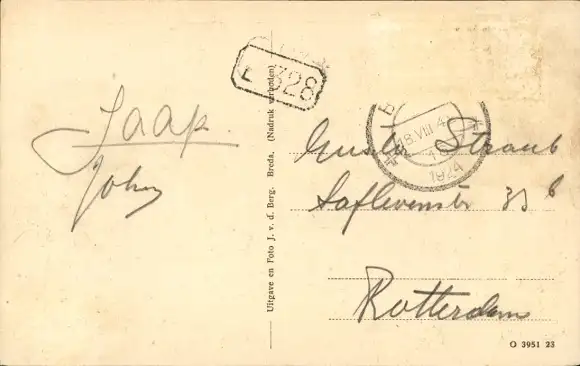 L 328
Jaap
John
Uitgave en Foto J. v. d. Berg. Breda. (Nadruk verboden)
8.VIII 4-
1924
Gusta Straub
Saftlevenstr 33 b
Rotterdam
O 3951 23